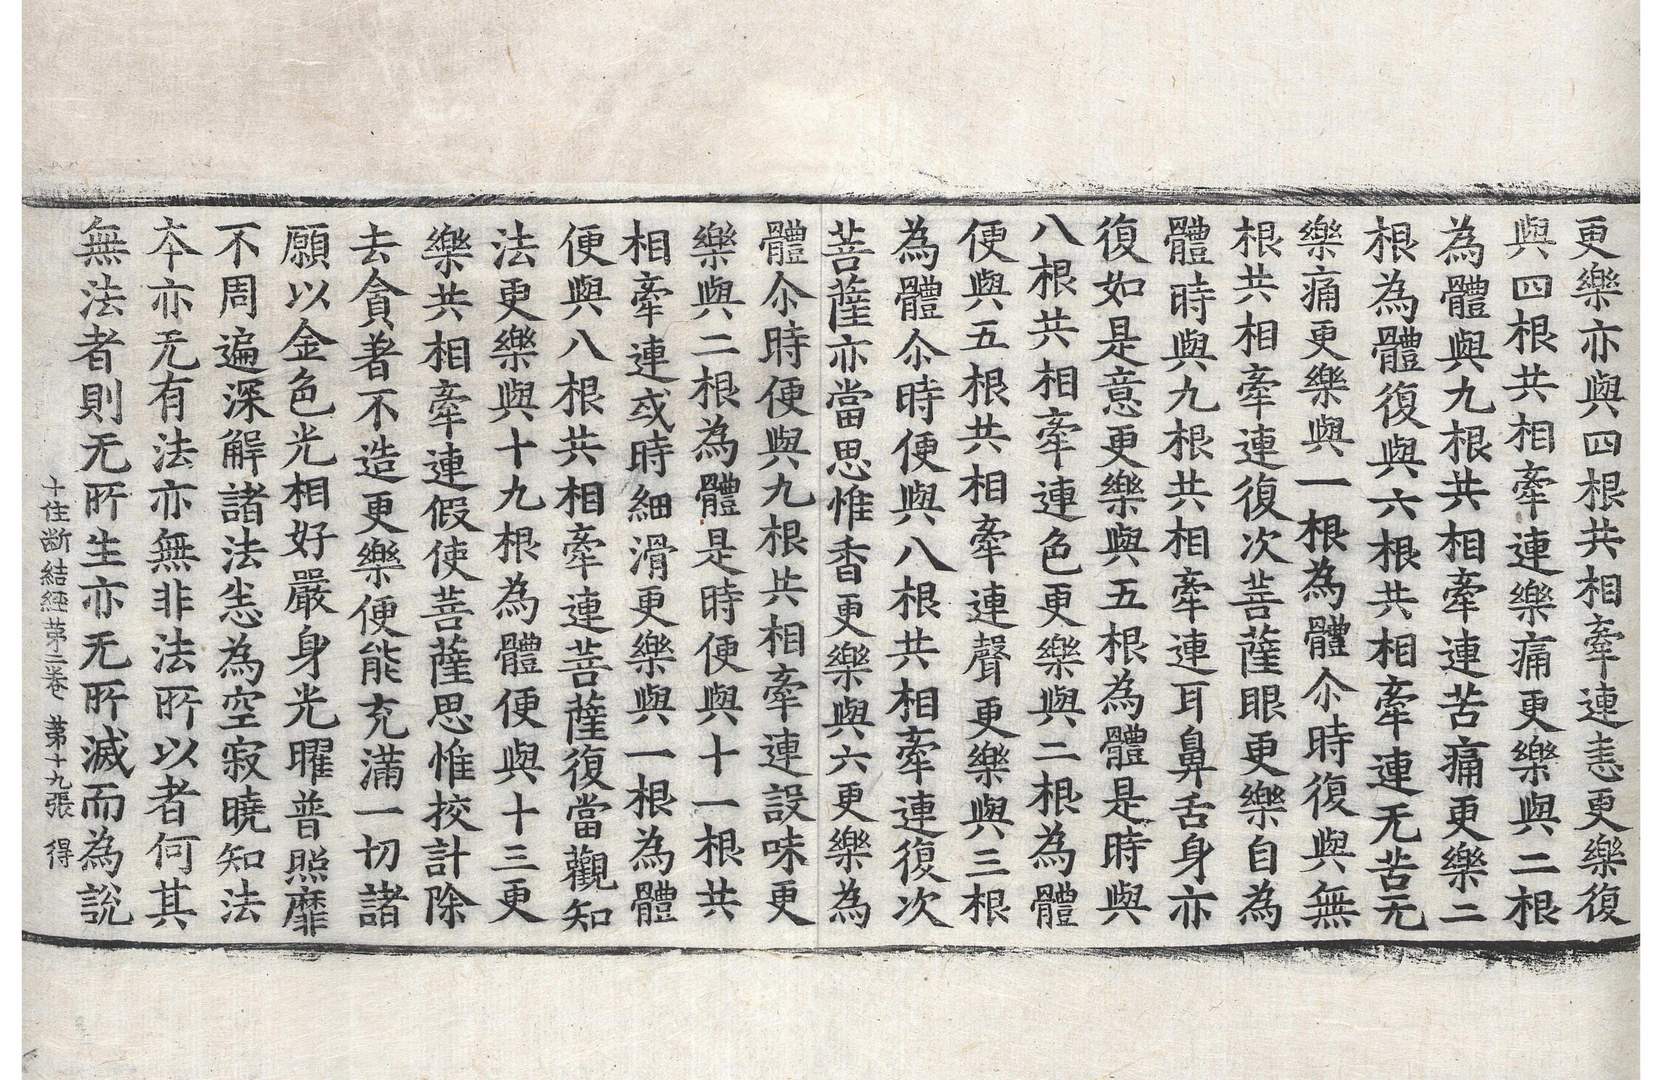 更樂亦與四根共相牽連恚更樂復
與四根共相牽連樂痛更樂與二根
為體與九根共相牽連苦痛更樂二
根為體復與六根共相牽連无苦无
樂痛更樂與一根為體尒時復與無
根共相牽連復次菩薩眼更樂自為
體時與九根共相牽連耳鼻舌身亦
復如是意更樂與五根為體是時與
八根共相牽連色更樂與二根為體
便與五根共相牽連聲更樂與三根
為體尒時便與八根共相牽連復次
菩薩亦當思惟香更樂與六更樂為
體尒時便與九根共相牽連設味更
樂與二根為體是時便與十一根共
相牽連或時細滑更樂與一根為體
便與八根共相牽連菩薩復當觀知
法更樂與十九根為體便與十三更
樂共相牽連假使菩薩思惟挍計除
去貪著不造更樂便能充滿一切諸
願以金色光相好嚴身光曜普照靡
不周遍深解諸法悉為空寂曉知法
本亦无有法亦無非法所以者何其
無法者則无所生亦无所滅而為說
十住断結經第二卷 第十九張 得